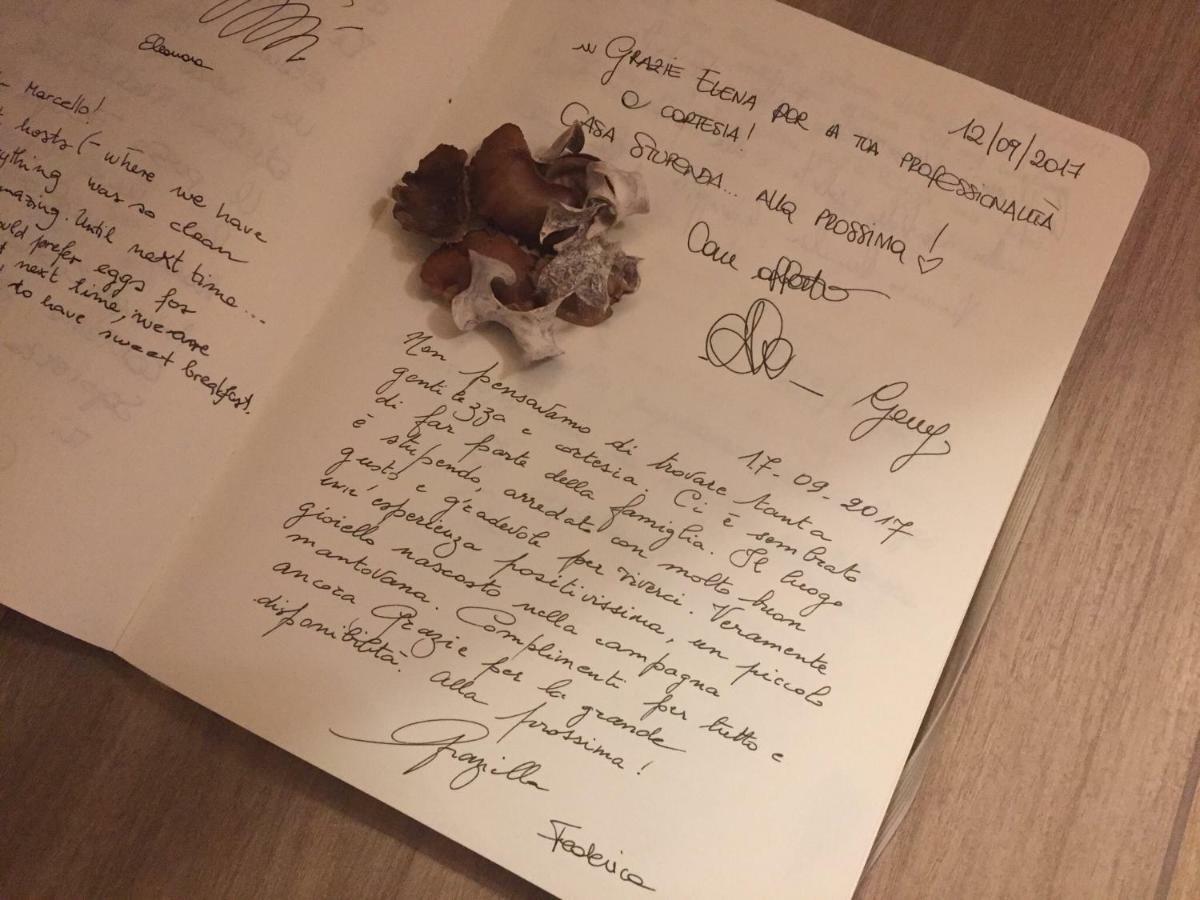 Eleonora
Marcello!
hosts (- where we have
everything was so clean
amazing. Until next time...
would prefer eggs for
next time, we are
to have sweet breakfast!
12/09/2017
... GRAZIE ELENA PER LA TUA PROFESSIONALITÀ
e CORTESIA!
CASA STUPENDA... ALLA PROSSIMA! ♡
Con affetto
17-09-2017
Non pensavamo di trovare tanta
gentilezza e cortesia. Ci è sembrato
di far parte della famiglia. Il luogo
è stupendo, arredato con molto buon
gusto e gradevole per viverci. Veramente
un'esperienza positivissima, un piccolo
gioiello nascosto nella campagna
mantovana. Complimenti per tutto e
ancora Grazie per la grande
disponibilità. Alla prossima!
Graziella
Federica